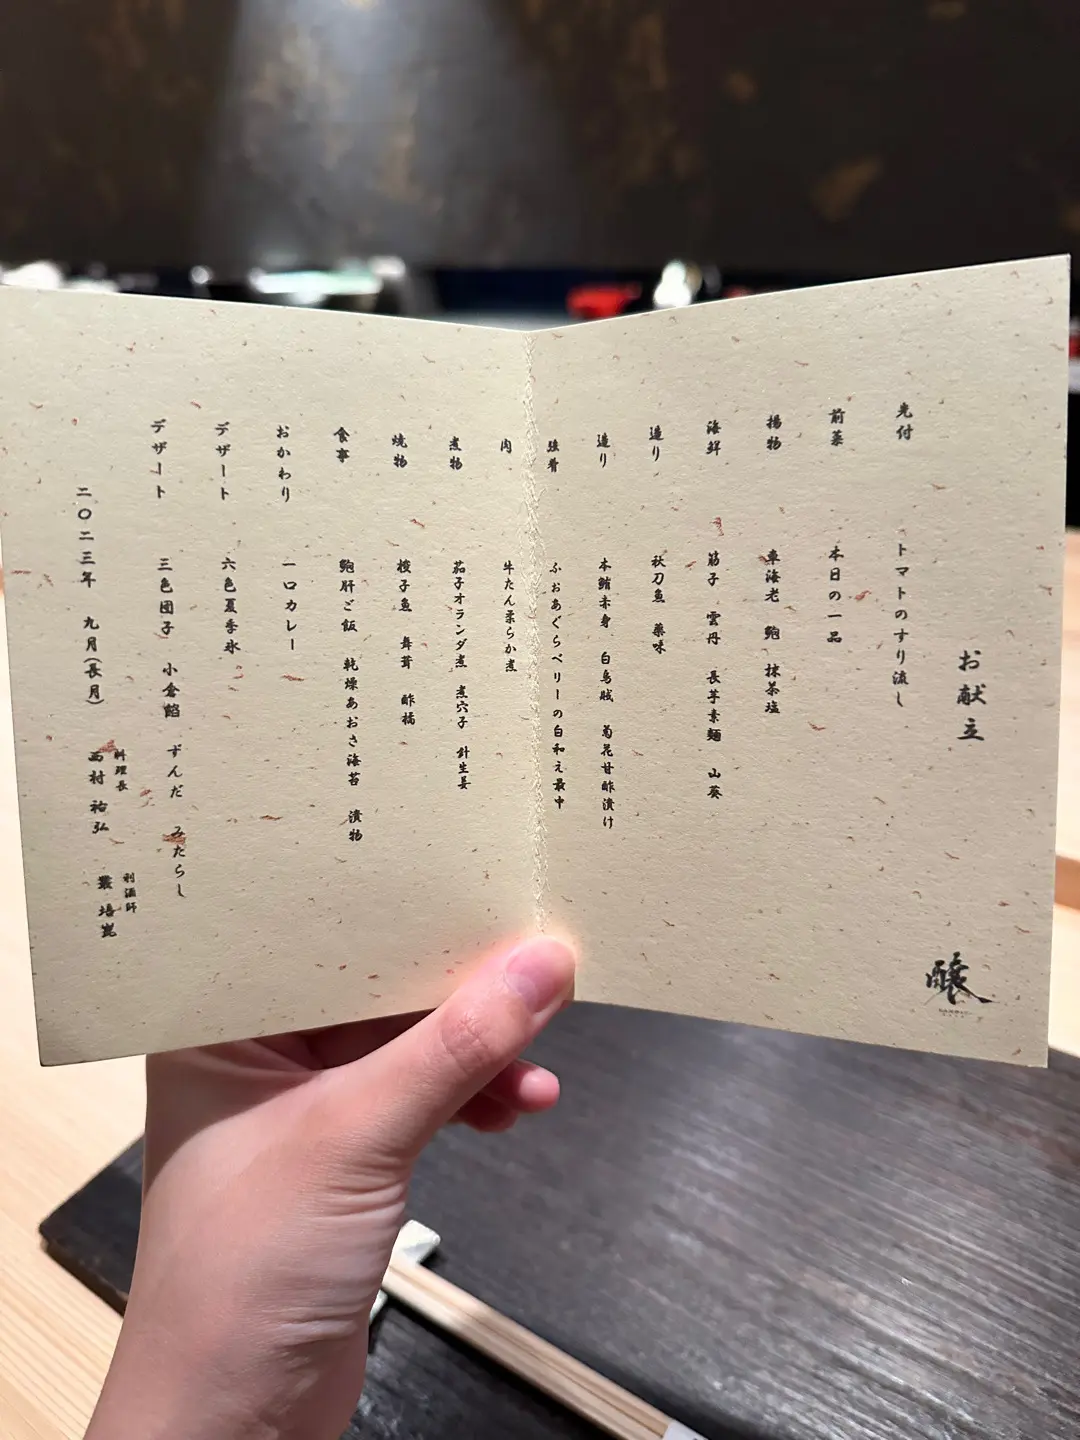 お献立
先付　トマトのすり流し
前菜　本日の一品
揚物　車海老　鮑　抹茶塩
海鮮　筋子　雲丹　長芋素麺　山葵
造り　秋刀魚　薬味
造り　本鮪赤身　白烏賊　菊花甘酢漬け
強肴　ふぉあぐらべりーの白和え最中
肉　牛たん柔らか煮
煮物　茄子オランダ煮　煮穴子　針生姜
焼物　梭子魚　舞茸　酢橘
食事　鮑肝ご飯　乾燥あおさ海苔　漬物
おかわり　一口カレー
デザート　六色夏季氷
デザート　三色団子　小倉餡　ずんだ　みたらし
二〇二三年　九月(長月)
料理長
西村　祐弘
利酒師
叢　培崑
醸